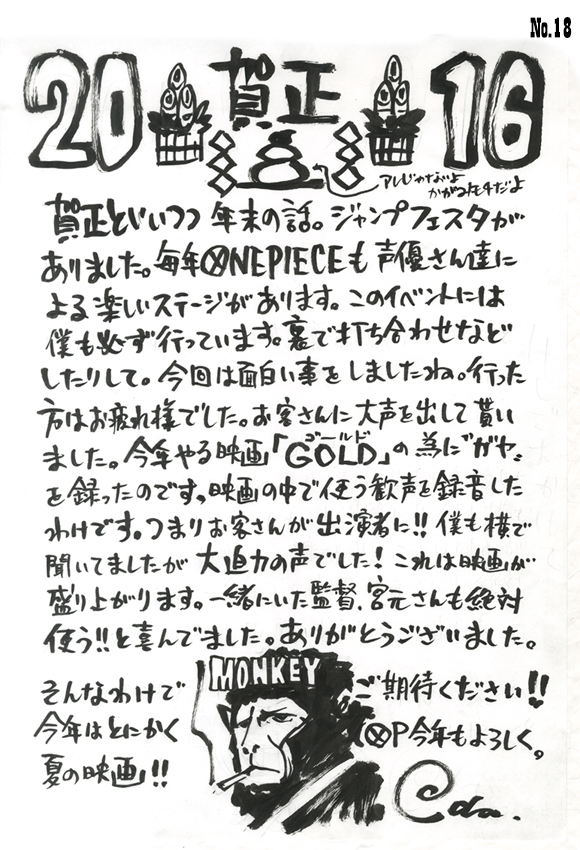 No.18
20 賀正 16
アレじゃないよ
かがみモチだよ
賀正といいつつ 年末の話。ジャンプフェスタが
ありました。毎年ONEPIECEも声優さん達に
よる楽しいステージがあります。このイベントには
僕も必ず行っています。裏で打ち合わせなど
したりして。今回は面白い事をしましたね。行った
方はお疲れ様でした。お客さんに大声を出して貰い
ました。今年やる映画「GOLD」の為に"ガヤ"
ゴールド
を録ったのです。映画の中で使う歓声を録音した
わけです。つまりお客さんが出演者に!! 僕も横で
聞いてましたが 大迫力の声でした! これは映画が
盛り上がります。一緒にいた監督、宮元さんも絶対
使う!!と喜んでました。ありがとうございました。
MONKEY
そんなわけで
今年はとにかく
夏の映画!!
ご期待ください!!
OP今年もよろしく。
Oda.